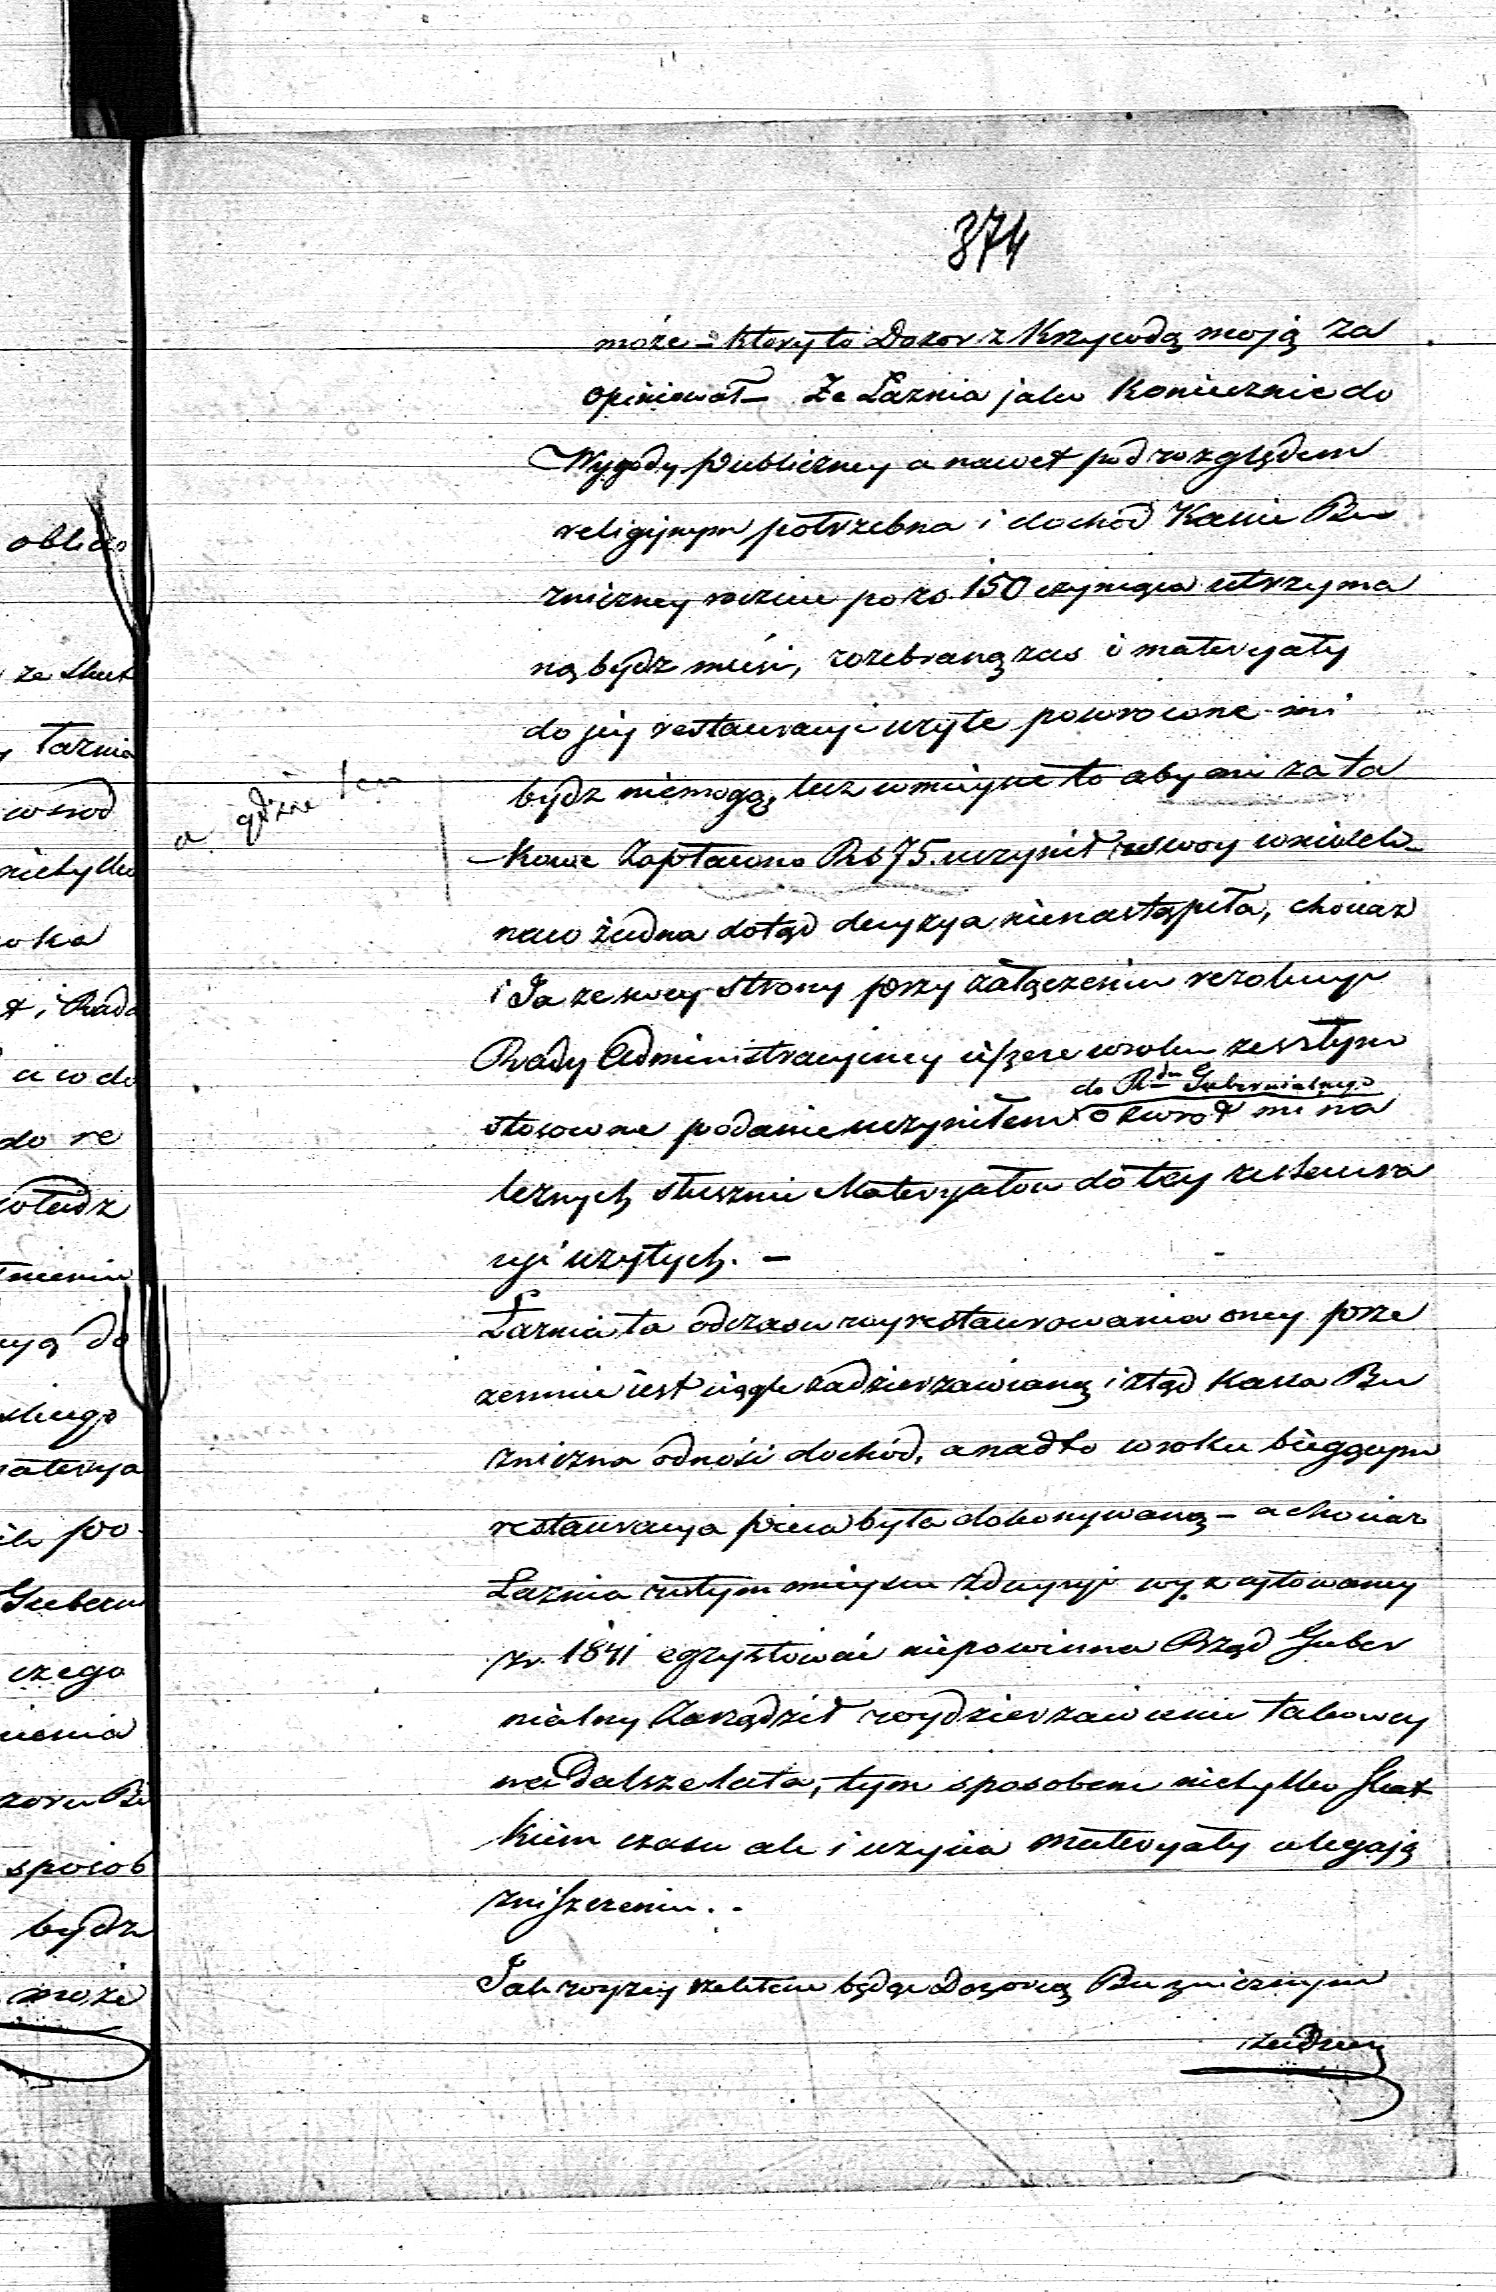 374
może – który to Dozor z Krzywdą moją za
opiniował – Że Łaznia jako Koniecznie do
Wygody Publiczney a nawet pod względem
religijnym potrzebna i dochod Kasie Bu
zniczney rocznie po rs 150 czyniąca utrzyma
ną bydz musi, rozebraną zas i materyały
do jey restauracyi uzyte powrocone mi
bydz niemogą, lecz w mieysce to aby mi za ta
kowe Zapłacono Rs 75. uczynił swoy wniosek
na co żadna dotąd decyzya nienastąpiła, chociaz
i Ja ze swey strony przy załączeniu rezolucyi
Rady Administracyiney ieszcze w roku zeszłym
do R<sup>du</sup> Gubernialnego
stosowne podanie uczyniłem o zwrot mi na
leznych słusznie Materyałow do tey restaura
cyi uzytych. –
Łaznia ta od czasu wyrestaurowania oney prze
zemnie iest ciągle zadzierzawianą i ztąd Kassa Bu
zniczna odnosi dochód, a nadto w roku biezącym
restauracya pieca była dokonywaną – a chociaz
Łaznia w tym mieyscu z decyzyi wyz cytowaney
z r. 1841 egzystować niepowinna Rząd Guber
nialny Zarządził wydzierzawienie takowey
na Dalsze lata, tym sposobem nietylko skut
kiem czasu ale i uzycia materyały ulegają
zniszczeniu. -
Jak wyzey rzekłem będąc Dozorcą Buznicznym
żadney
a gdzie ten
oblicz
ze skut
Łaznia
wsrod
nietylko
i Rada
do re
do
materya
po
Gubern
czego
sposob
bydz
może